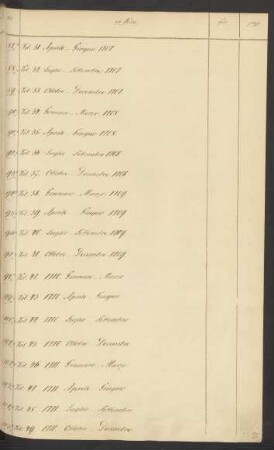 Vol. 31 Aprile Giugno 1767
Vol. 32 Luglio Settembre 1767
Vol. 33 Ottobre Decembre 1767
Vol. 34 Gennaro Marzo 1768
Vol. 35 Aprile Giugno 1768
Vol. 36 Luglio Settembre 1768
Vol. 37 Ottobre Decembre 1768
Vol. 38 Gennaro Marzo 1769
Vol. 39 Aprile Giugno 1769
Vol. 40 Luglio Settembre 1769
Vol. 41 Ottobre Decembre 1769
Vol. 42 1770 Gennaro Marzo
Vol. 43 1770 Aprile Giugno
Vol. 44 1770 Luglio Settembre
Vol. 45 1770 Ottobre Decembre
Vol. 46 1771 Gennaro Marzo
Vol. 47 1771 Aprile Giugno
Vol. 48 1771 Luglio Settembre
Vol. 49 1771 Ottobre Decembre